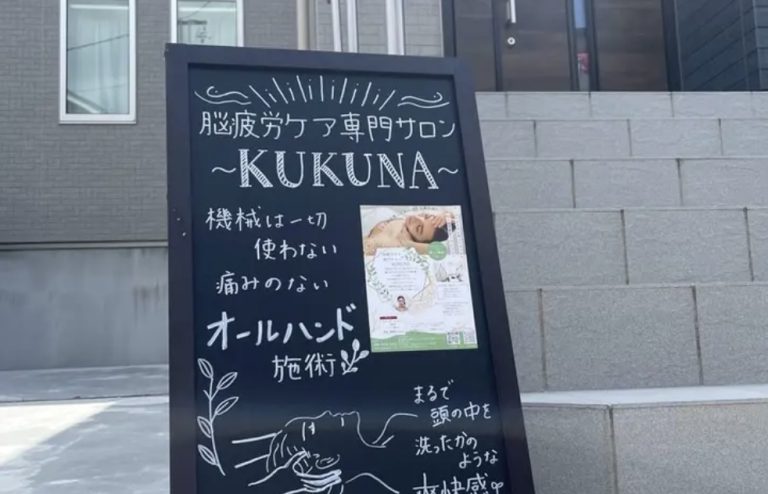 脳疲労ケア専門サロン
～KUKUNA～
機械は一切
使わない
痛みのない
オールハンド
施術
まるで
頭の中を
洗ったかの
ような
爽快感